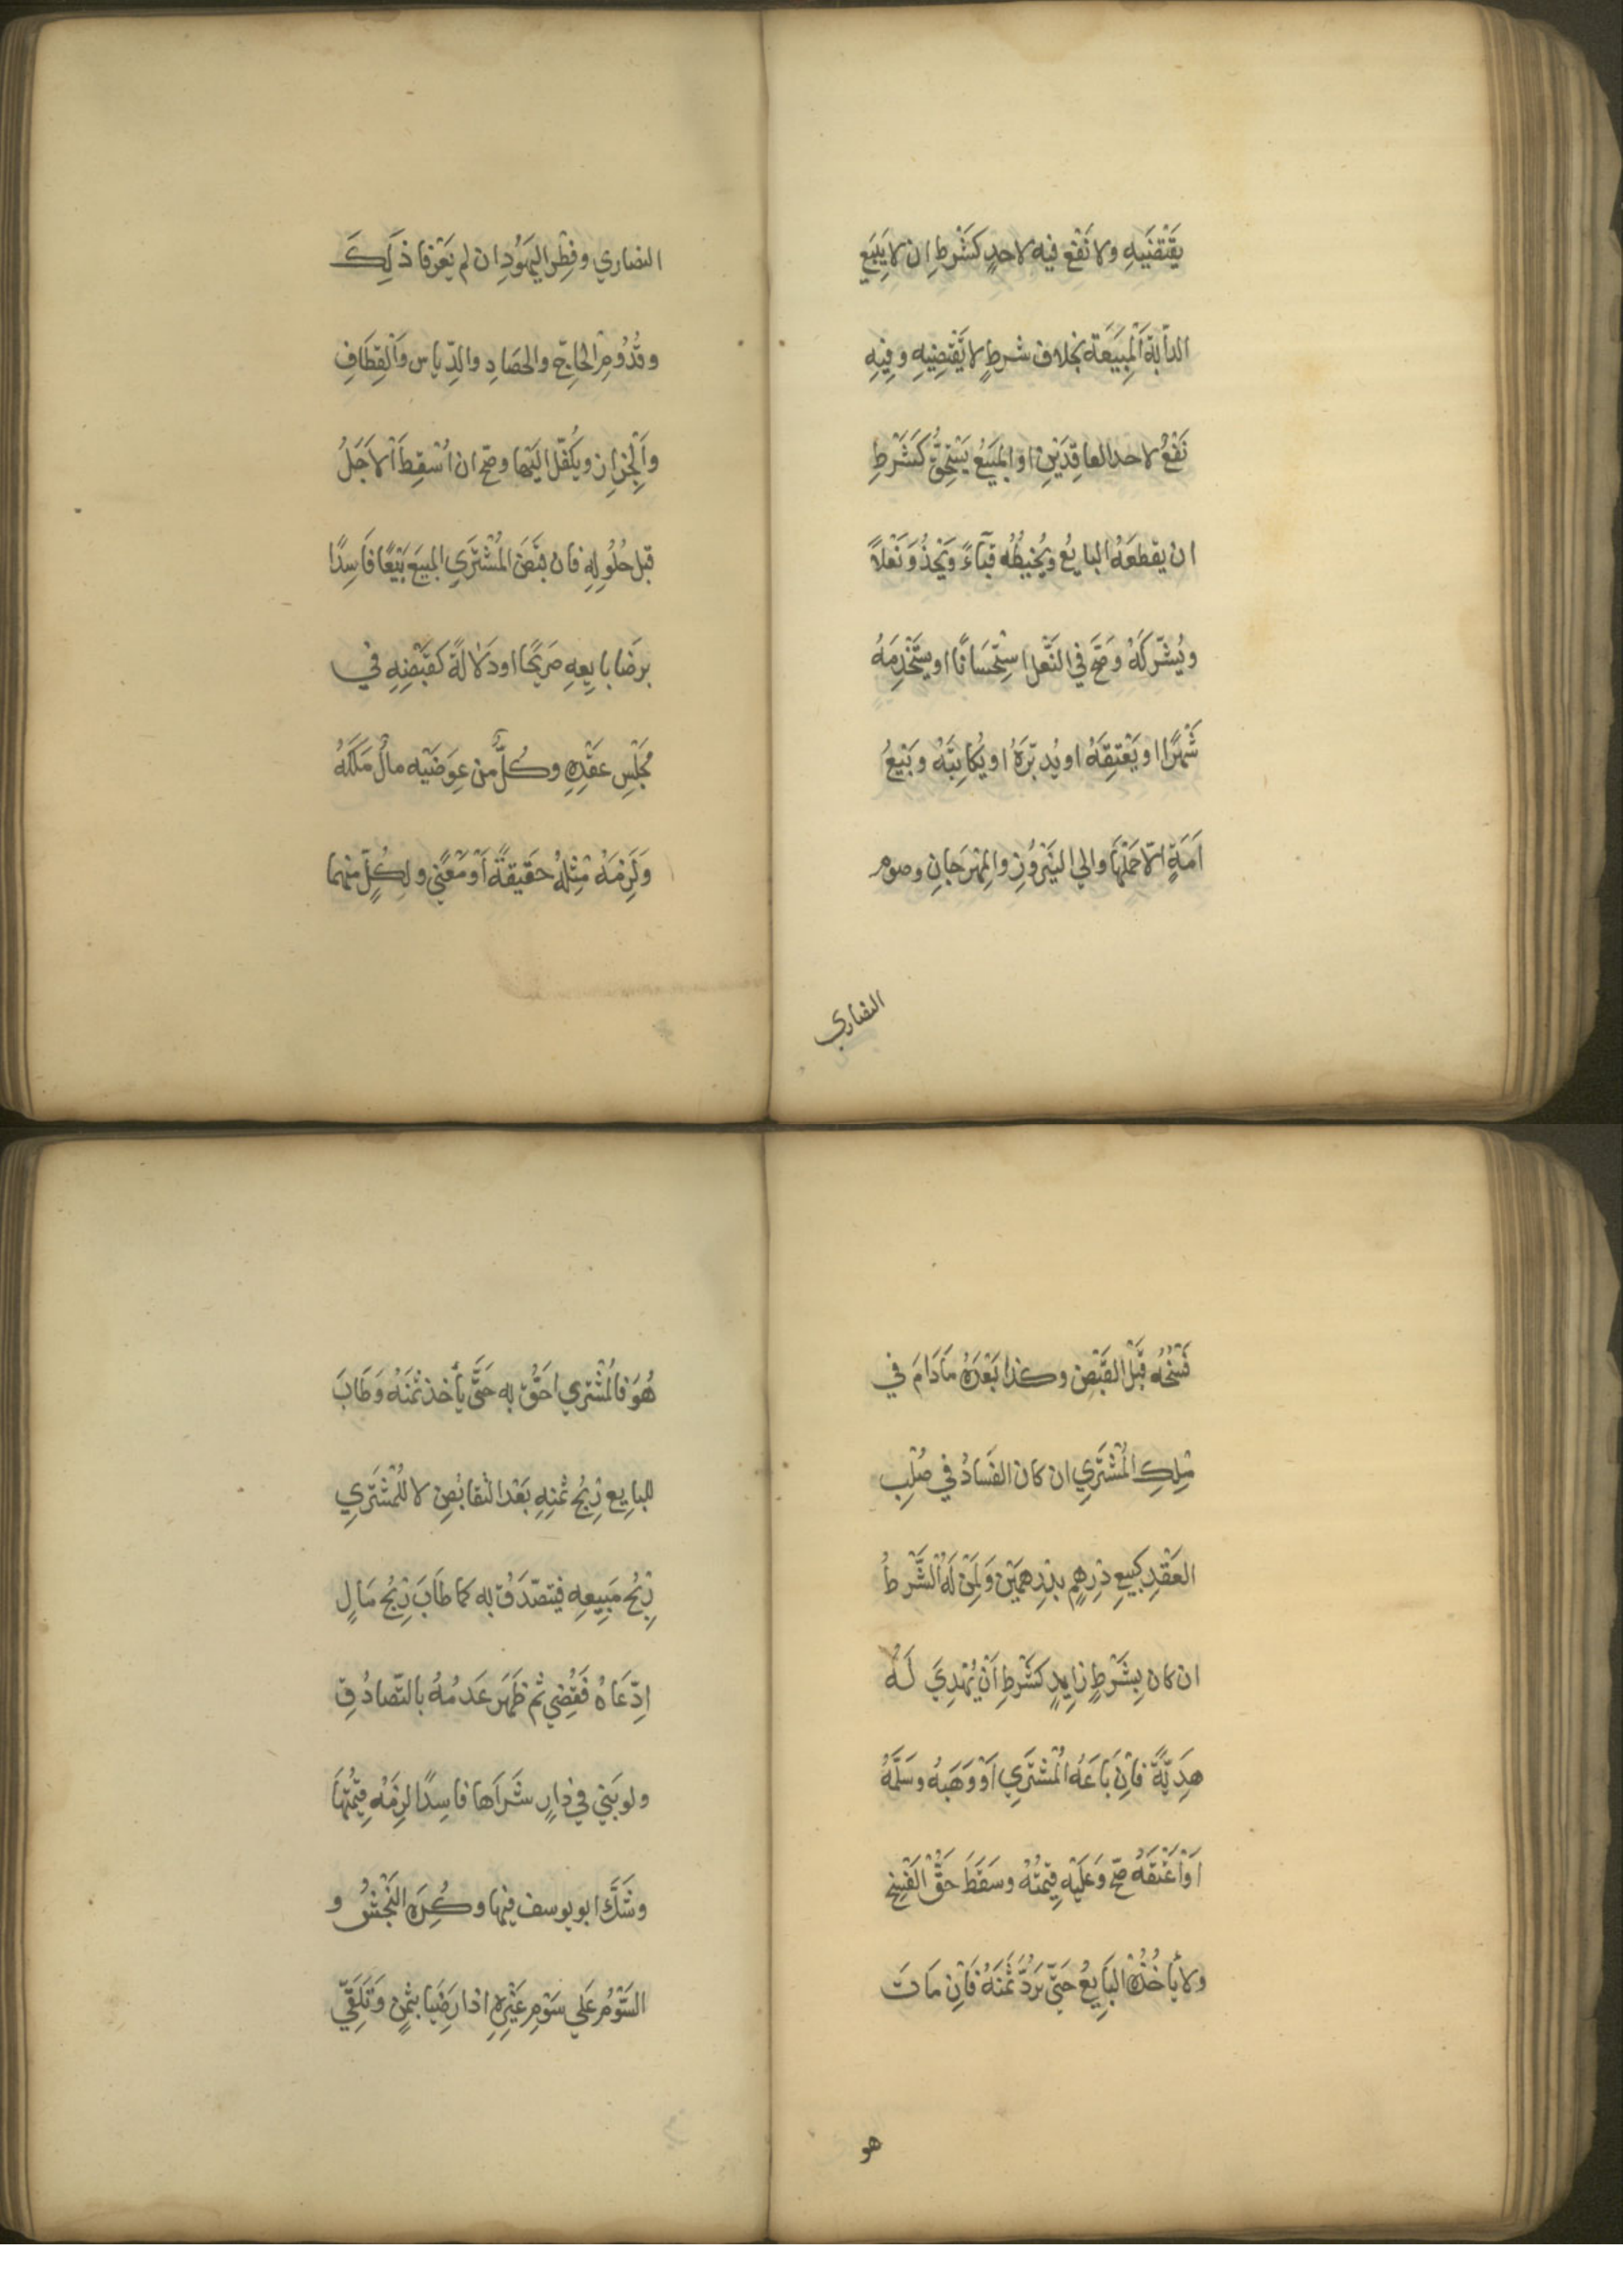 يَقْتَضَيهِ ولا نَفْعَ فيه لاحدٍ كَشَرْطِ ان لا يَبِيَع
الدأبة اَلْمبِيَعَة بخلاف شرطٍ لا يَقْتَضِيهِ وفِيهِ
نَفْعُ لاحد العاقِدَيْنِ او المبَيَعُ يَسْتَحِقُّ كَشَرْطِ
ان يقطعَهُ البايعُ ويُخِيطُه قبَآءً ويَحْذُوَ نَعْلاً
ويُشَرّكَهُ وصَحّ في النَّعْل اسِتْحَسَانًا او يستَخْدِمَهُ
شَهْرًا او يَعْتِقَهُ او يُدبّرَهُ او يُكَاتِبَهُ وبَيْعُ
اَمَةٍ الّا حَمْلَهَا والي النَيْرُوُزِ والمِهْرَجانِ وصوم
النصاري
النصاري وفِطْرِ اليَهَوُدِ ان لم يَعْرفا ذلِكَ
وقُدُومِ الحَاِجّ والحصَادِ والدِّياس واَلْقِطَافِ
واَلْجزازِ ويكفّل اليَها وصحّ ان اُسْقِطَ اْلاَجَلُ
قبل حُلُولِهِ فان قبَضَ المُشْتَرَي المبيَعَ بَيْعًا فَاسِدًا
برَضا بايِعِهِ صَريَحًا او دَلالةً كقَبْضِهِ في
مَجْلَسِ عَقْدِهِ وكُلٌّ من عِوَضَيْه مالٌ مَلَكَهُ
وَلَزِمَهُ مِثْلهُ حقَيِقةً اَوْ مَعْنَي ولِكُلٍّ منهما
فَسْخُه قَبْل القَبْضِ وكذا بَعْدَهُ مَا دَامَ في
مِلكِ المُشْتَرَي ان كان الفَسَادُ في صُلْبِ
العَقْدِ كبيعِ دِرهمٍ بدِرهمَيَن وَلمَنْ لَهُ الشَّرطُ
ان كان بشَرْطٍ زاِيدٍ كَشَرْطِ اَنْ يُهْدِيَ لَهُ
هدِيّةً فاِنْ باَعَهُ المُشَتَرِي اَوْ وَهَبَهُ وسَلَّمَهُ
اَوْ اَعْتَقَهُ صحّ وعَلَيْهِ قِيمتُهُ وسَقَطَ حَقُّ الفَسْخِ
ولا يأخُذُه البَايِعُ حَتّيَ يَردَّ ثمَنَهُ فَاِن مَاتَ
هو
هُوَ فالمُشْترِي اَحَقُّ به حَتَّي يأخذ ثمَنَهُ وَطَابَ
للبايِع رِبْحُ ثمنِهِ بَعْدَ التقَابُضِ لا للمُشَتَرِي
رِبْحُ مَبِيعِهِ فيتصّدَقُ به كما طَابَ رِبْحُ مَالٍ
اِدّعَاهُ فَقُضِي ثم ظَهَرَ عَدمُهُ بالتّصادُقِ
ولو بَنَي في دارٍ شَرَاها فاسِدًا لزِمَهُ قِيمَتُهَا
وشَكَّ ابو يوسف فيها وكُرِهَ النَجْشُ و
السَّوْمُ عَلي سَوْمِ غَيْرِهِ اذا رَضِيَا بثمنٍ وَتَلَقّيَ